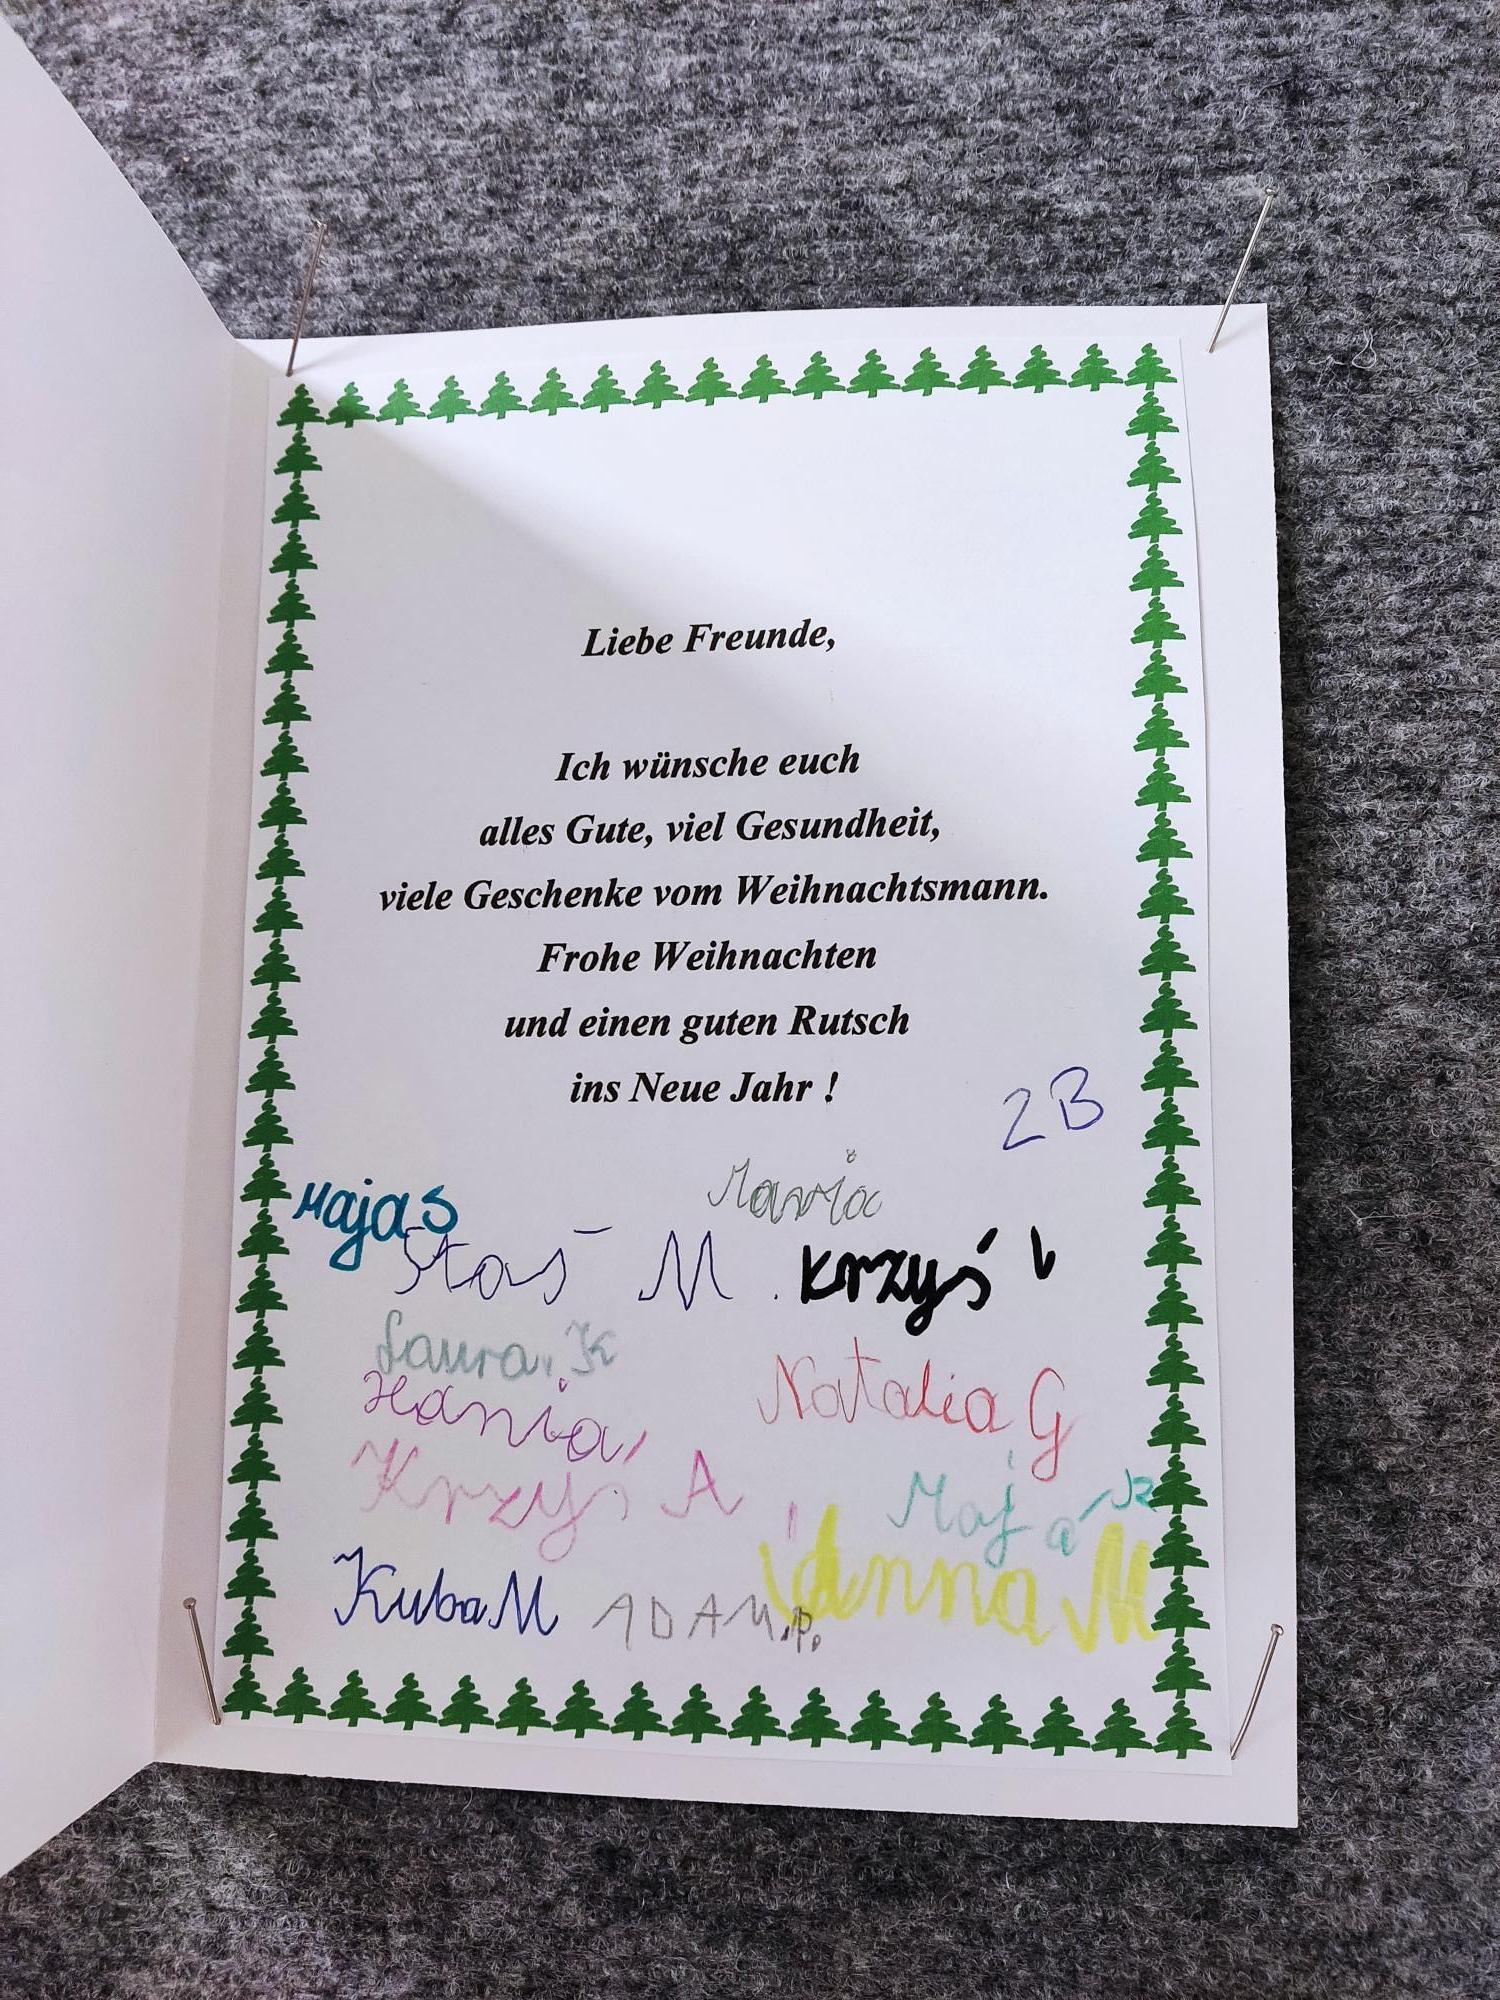 Liebe Freunde,
Ich wünsche euch
alles Gute, viel Gesundheit,
viele Geschenke vom Weihnachtsmann.
Frohe Weihnachten
und einen guten Rutsch
ins Neue Jahr !
2B
Maja S
Maria
Staś M.
Krzyś
Laura. K
Hania
Natalia G
Krzyś A
Maja
Kuba M
ADAM.P.
Anna M